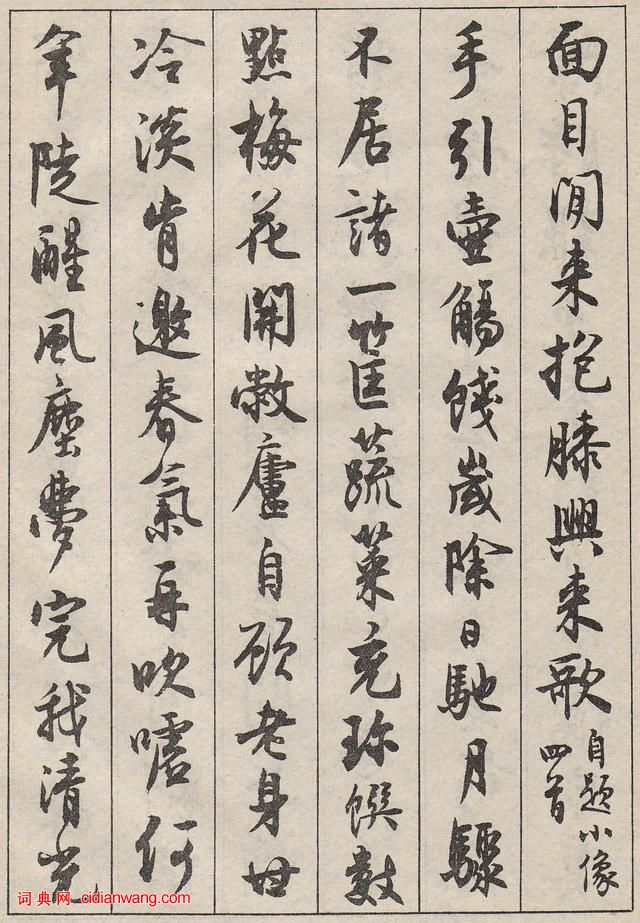 面目閒来抱膝興来歌 自題小像
四首
手引壺觴餞歲除日馳月驟
不居諸一筐蔬菜充珎饌數
點梅花開敝廬自顧老身世
冷淡肯邀春氣再吹噓何
年陡醒風塵夢完我清光
词典网 - cidianwang.com